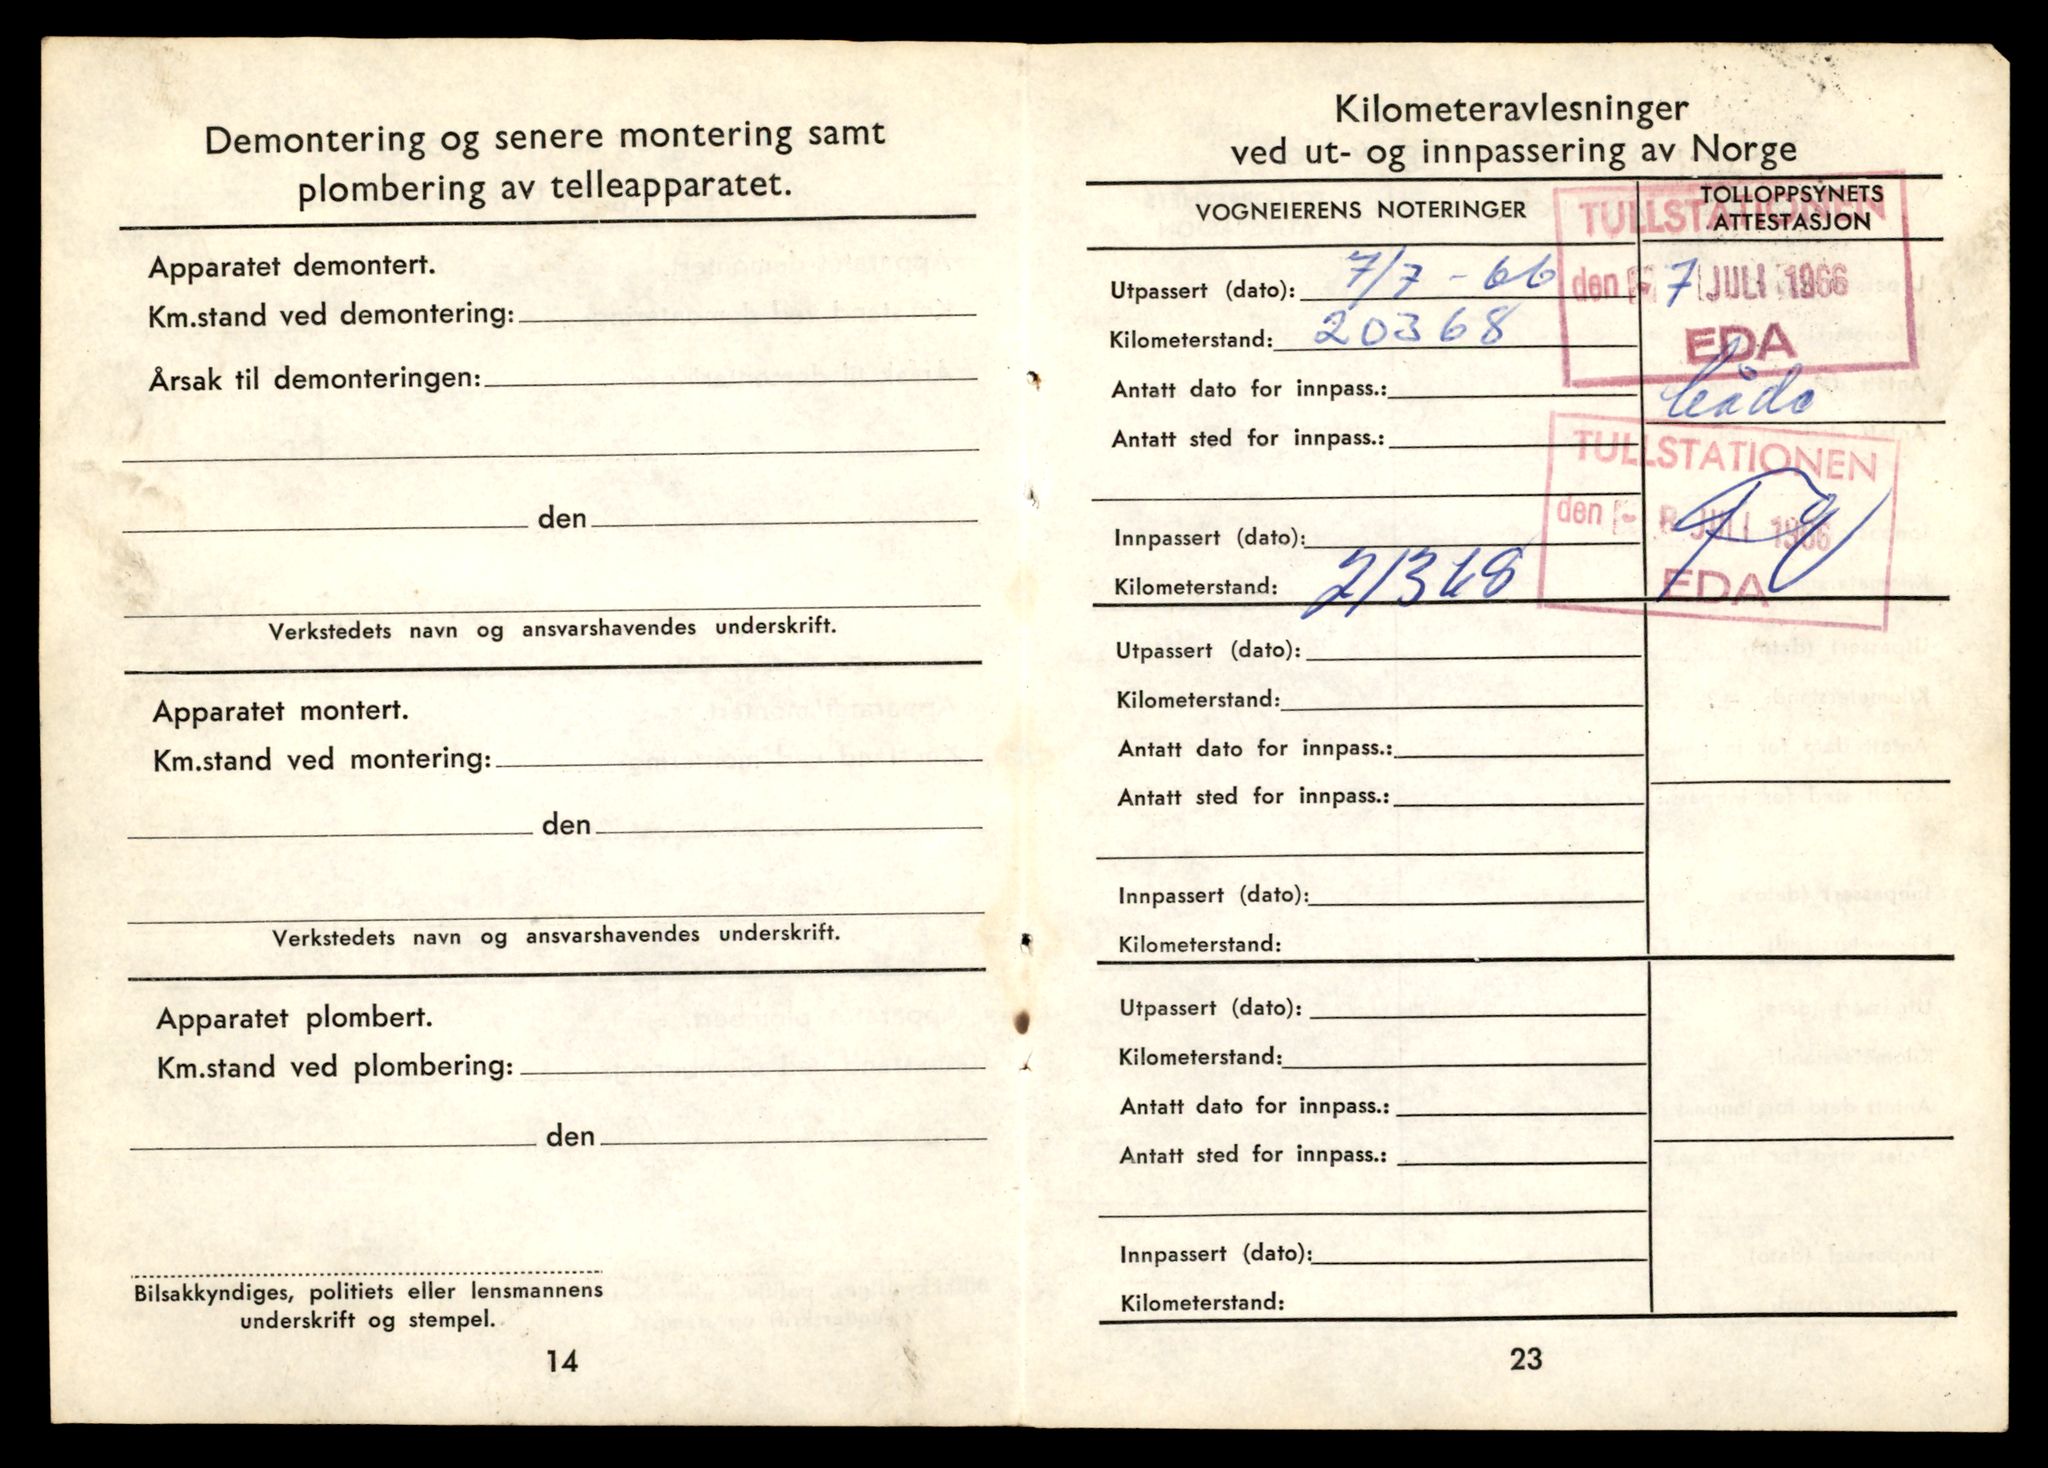 Demontering og senere montering samt
plombering av telleapparatet.
Apparatet demontert.
Km.stand ved demontering:
Årsak til demonteringen:
den
Verkstedets navn og ansvarshavendes underskrift.
Apparatet montert.
Km.stand ved montering:
den
Verkstedets navn og ansvarshavendes underskrift.
Apparatet plombert.
Km.stand ved plombering:
den
Bilsakkyndiges, politiets eller lensmannens
underskrift og stempel.
14
Kilometeravlesninger
ved ut- og innpassering av Norge
VOGNEIERENS NOTERINGER
TOLLOPPSYNETS
ATTESTASJON
TULLSTATIONEN
Utpassert (dato): 7/7 - 66
den 7 JULI 1966
Kilometerstand: 20368
EDA
Antatt dato for innpass.:
Antatt sted for innpass.:
TULLSTATIONEN
den - 8 JULI 1966
Innpassert (dato):
Kilometerstand: 21368
EDA
Utpassert (dato):
Kilometerstand:
Antatt dato for innpass.:
Antatt sted for innpass.:
Innpassert (dato):
Kilometerstand:
Utpassert (dato):
Kilometerstand:
Antatt dato for innpass.:
Antatt sted for innpass.:
Innpassert (dato):
Kilometerstand:
23